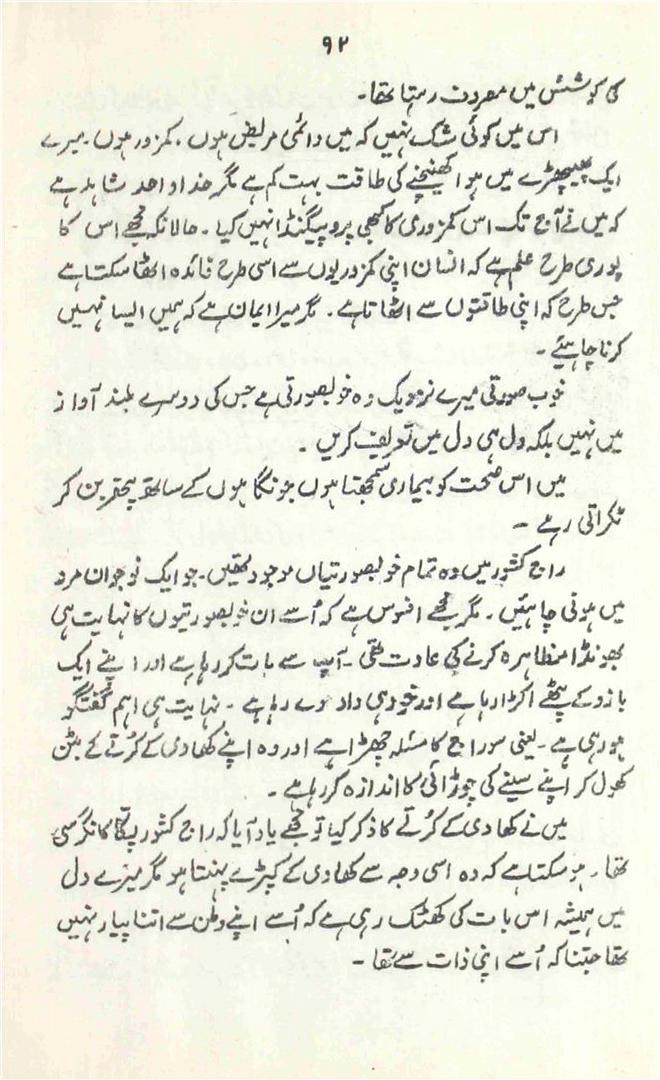 ۹۲
کی کوشش میں مصروف رہتا تھا۔
اس میں کوئی شک نہیں کہ میں دائمی مریض ہوں، کمزور ہوں۔ میرے
ایک پھیپھڑے میں ہوا کھینچنے کی طاقت بہت کم ہے مگر خدا واحد شاہد ہے
کہ میں نے آج تک اس کمزوری کا کبھی پروپیگنڈا نہیں کیا۔ حالانکہ مجھے اس کا
پوری طرح علم ہے کہ انسان اپنی کمزوریوں سے اسی طرح فائدہ اٹھا سکتا ہے
جس طرح کہ اپنی طاقتوں سے اٹھاتا ہے۔ مگر میرا ایمان ہے کہ ہمیں ایسا نہیں
کرنا چاہیئے۔
خوب صورتی میرے نزدیک وہ خوبصورتی ہے جس کی دوسرے بلند آواز
میں نہیں بلکہ دل ہی دل میں تعریف کریں۔
میں اس صحت کو بیماری سمجھتا ہوں جو نگاہوں کے ساتھ پتھر بن کر
ٹکراتی رہے۔
راج کشور میں وہ تمام خوبصورتیاں موجود تھیں۔ جو ایک نوجوان مرد
میں ہونی چاہئیں۔ مگر مجھے افسوس ہے کہ اُسے ان خوبصورتیوں کا نہایت ہی
بھونڈا مظاہرہ کرنے کی عادت تھی۔ آپ سے بات کر رہا ہے اور اپنے ایک
بازو کے پٹھے اکڑا رہا ہے اور خود ہی داد دے رہا ہے۔ نہایت ہی اہم گفتگو
ہو رہی ہے۔ یعنی سوراج کا مسئلہ چھڑا ہے اور وہ اپنے کھادی کے کُرتے کے بٹن
کھول کر اپنے سینے کی چوڑائی کا اندازہ کر رہا ہے۔
میں نے کھادی کے کُرتے کا ذکر کیا تو مجھے یاد آیا کہ راج کشور پکا کانگرسی
تھا۔ ہو سکتا ہے کہ وہ اسی وجہ سے کھادی کے کپڑے پہنتا ہو مگر میرے دل
میں ہمیشہ اس بات کی کھٹک رہی ہے کہ اُسے اپنے وطن سے اتنا پیار نہیں
تھا جتنا کہ اُسے اپنی ذات سے تھا۔